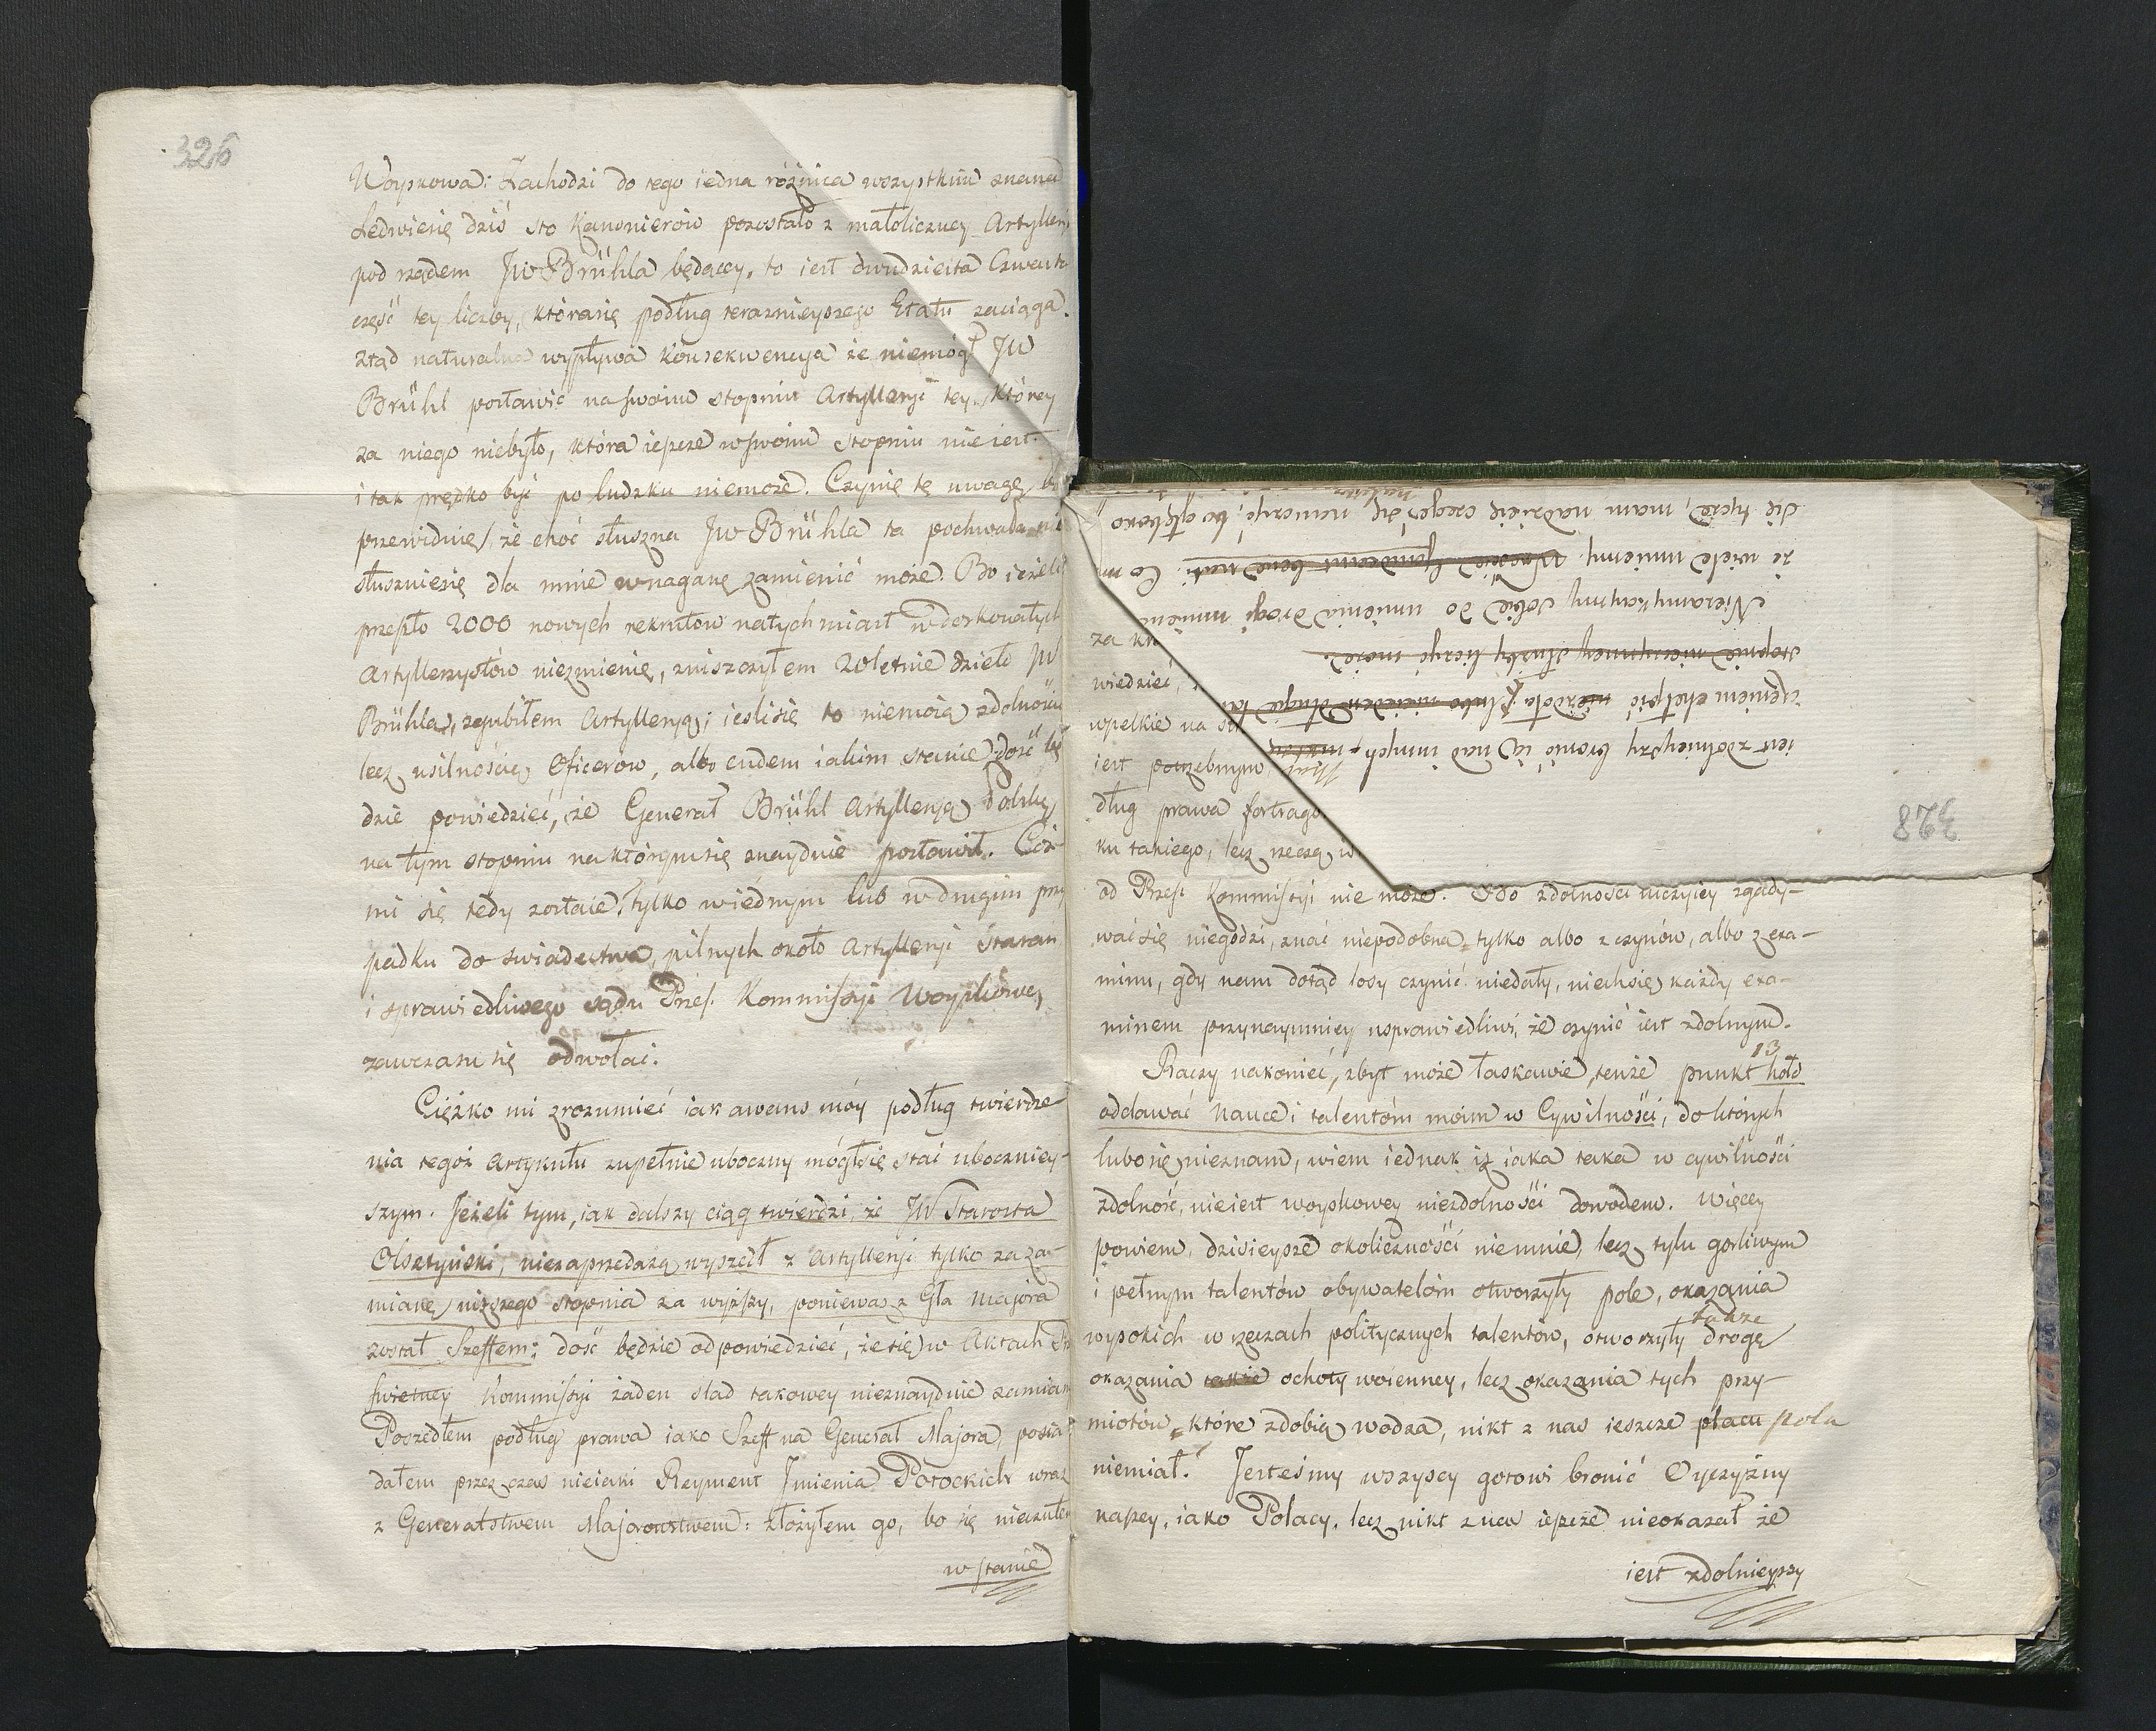 326
Woyskowa: Zachodzi do tego iedna różnica wszystkim znana
Ledwiesię dziś sto Kanonierów pozostało z małoliczney Artylleryi
pod rządem JW Brühla będącey, to iest dwudziesta Czwarta
część tey liczby, którasię podług teraznieyszego Etatu zaciąga.
ztąd naturalna wypływa konsekwencya że niemógł JW
Brühl postawić na swoim stopniu Artylleryi tey, którey
za niego niebyło, która ieszcze w swoim stopniu nie iest
i tak prędko być po ludzku niemoże. Czynię tę uwagę, bo
przewiduię, że choć słuszna JW Brühla ta pochwała nie
słuszniesię dla mnie w naganę zamienić może. Bo ieżeli
przeszło 2000 nowych rekrutow natychmiast w doskonałych
Artyllerzystów niezmienię, zniszczyłem 20letnie dzieło JW
Brühla, zgubiłem Artylleryą; ieslisię to niemoią zdolnością
lecz usilnością Oficerow, albo cudem iakim stanie, dość bę
dzie powiedzieć, że Generał Brühl Artylleryą Polską
na tym stopniu na którymsię znayduie postawił. Cóż
mi się tedy zostaie, tylko w iednym lub w drugim przy
padku do swiadectwa, pilnych około Artylleryi staran
i sprawiedliwego sądu Przes. Kommissyi Woyskowey
zawczasu się odwołać.
Ciężko mi zrozumieć iak awans móy podług twierdze-
nia tegoż Artykułu zupełnie uboczny mógłsię stać uboczniey-
szym. Jeżeli tym, iak dalszy ciąg twierdzi, że JW Starosta
Olsztyński, niezaprzedażą wyszedł z Artylleryi tylko za za-
mianę niższego stopnia za wyższy, ponieważ z Gła Majora
został Szeffem; dość będzie odpowiedzieć, że się w Aktach
swietney Kommissyi żaden slad takowey nieznayduie zamiany
Poszedłem podług prawa iako Szeff na Generał Majora, posia
dałem przez czas nieiaki Regiment Jmienia Potockich wraz
z Generałstwem Majorowstwem: złożyłem go, bo się nieczułem
w stanie
328
iest zdolnieyszy bronić ią nad innych
stopnie służby liczyć może.
Niezamykaymy sobie do umienia drogi
że wiele umiemy. Co
się tycze, mam nadzieię że czego się nauczyć,
za
wiedzieć,
wszelkie na
iest potrzebnym
dług prawa fortrago
ku takiego, lecz rzeczą
od Przes. Kommissyi nie może. Bo zdolności niczyiey zgady-
waćsię niegodzi, znać niepodobna tylko albo z czynów, albo z exa-
minu, gdy nam dotąd losy czynić niedały, niechsię każdy exa-
minem przynaymniey usprawiedliwi, że czynić iest zdolnym.
Raczy nakoniec, zbyt może łaskawie, tenże punkt 13 hołd
oddawać nauce i talentóm moim w Cywilności, do których
lubosię nieznam, wiem iednak iż iaka taka w cywilności
zdolność, nieiest woyskowey niezdolności dowodem. Więcey
powiem, dzisieysze okoliczności niemnie, lecz tylu gorliwym
i pełnym talentów obywatelóm otworzyły pole, okazania
wysokich w rzeczach politycznych talentów, otworzyły także drogę
okazania także ochoty woienney, lecz okazania tych przy-
miotów które zdobią wodza, nikt z nas ieszcze placu pola
niemiał. Jesteśmy wszyscy gotowi bronić Oyczyzny
naszey, iako Polacy, lecz nikt z nas ieszcze nieokazał że
iest zdolnieyszy